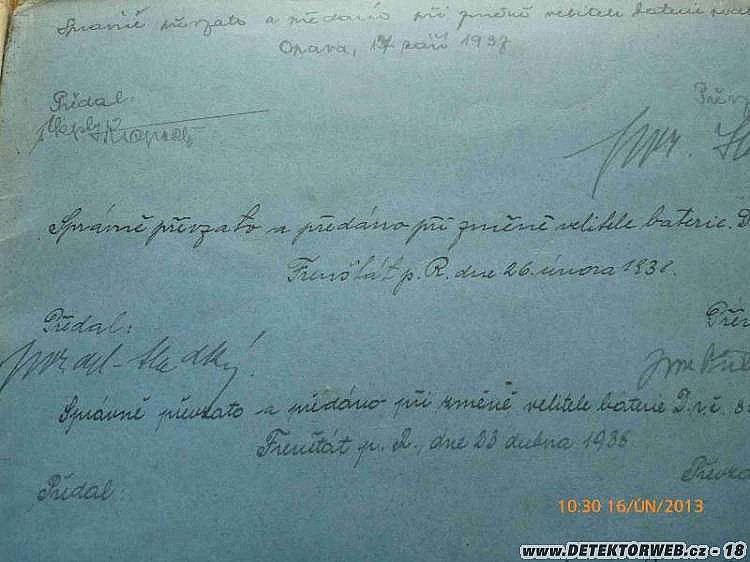 Správně převzato a předáno při změně velitele baterie
Opava, 17 září 1937
Předal:
Převz
Správně převzato a předáno při změně velitele baterie. D
Frenštát p. R. dne 26. února 1938.
Předal:
Přev
Správně převzato a předáno při změně velitele baterie D.
Frenštát p. R., dne 23 dubna 1938
Předal:
Převza
10:30 16/ÚN/2013
www.DETEKTORWEB.cz - 18